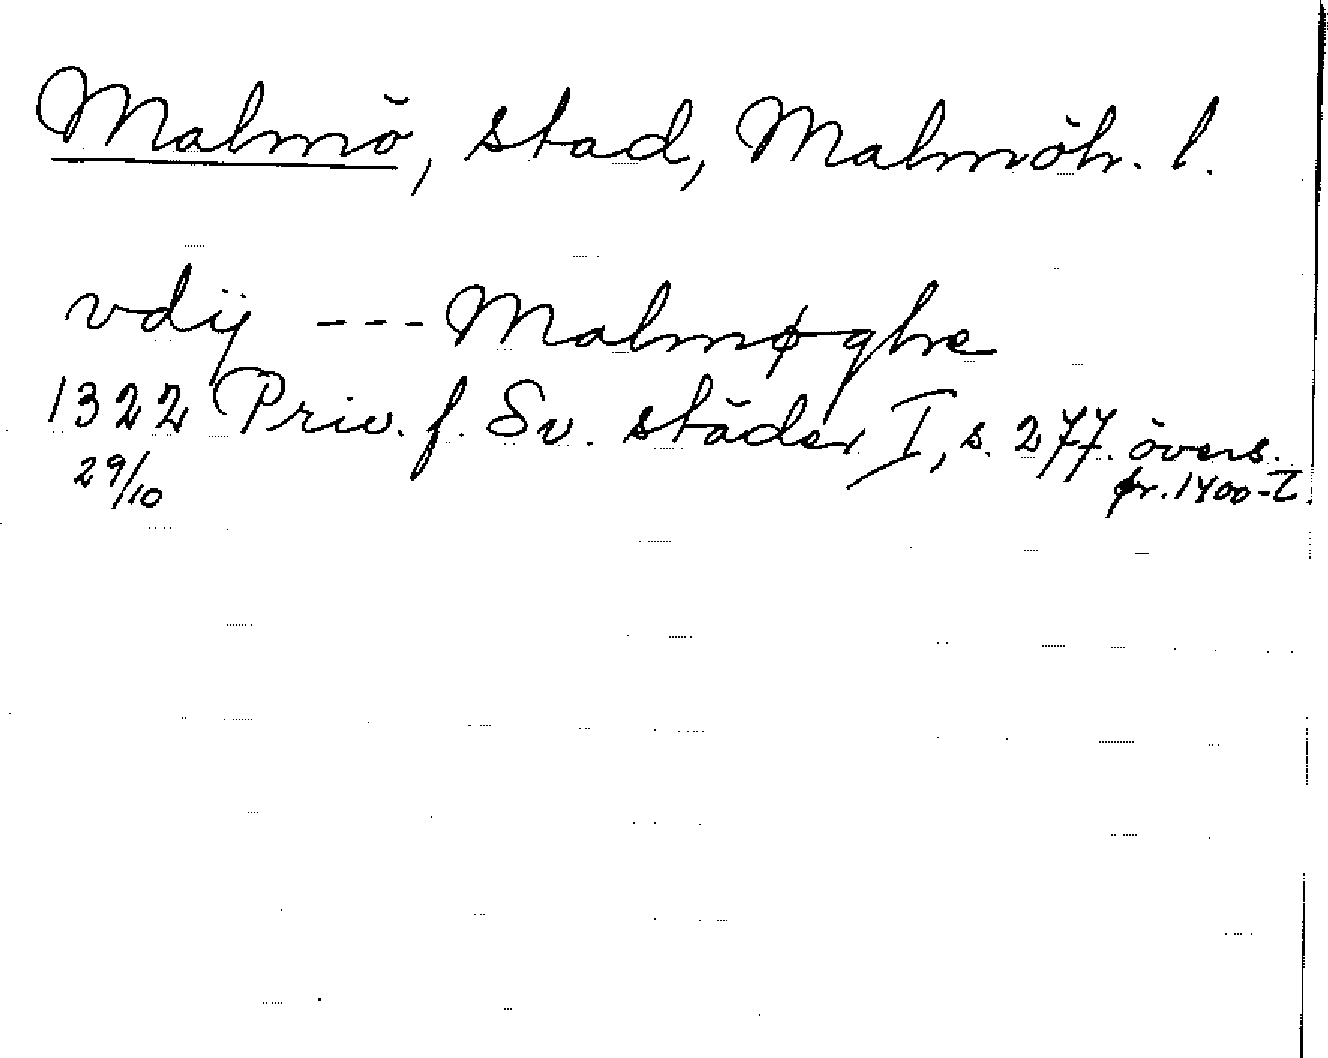 Malmö, stad, Malmöh. l.
vdij --- Malmøghe
1322 Priv. f. Sv. städer I, s. 277. övers.
29/10 fr. 1400-t.